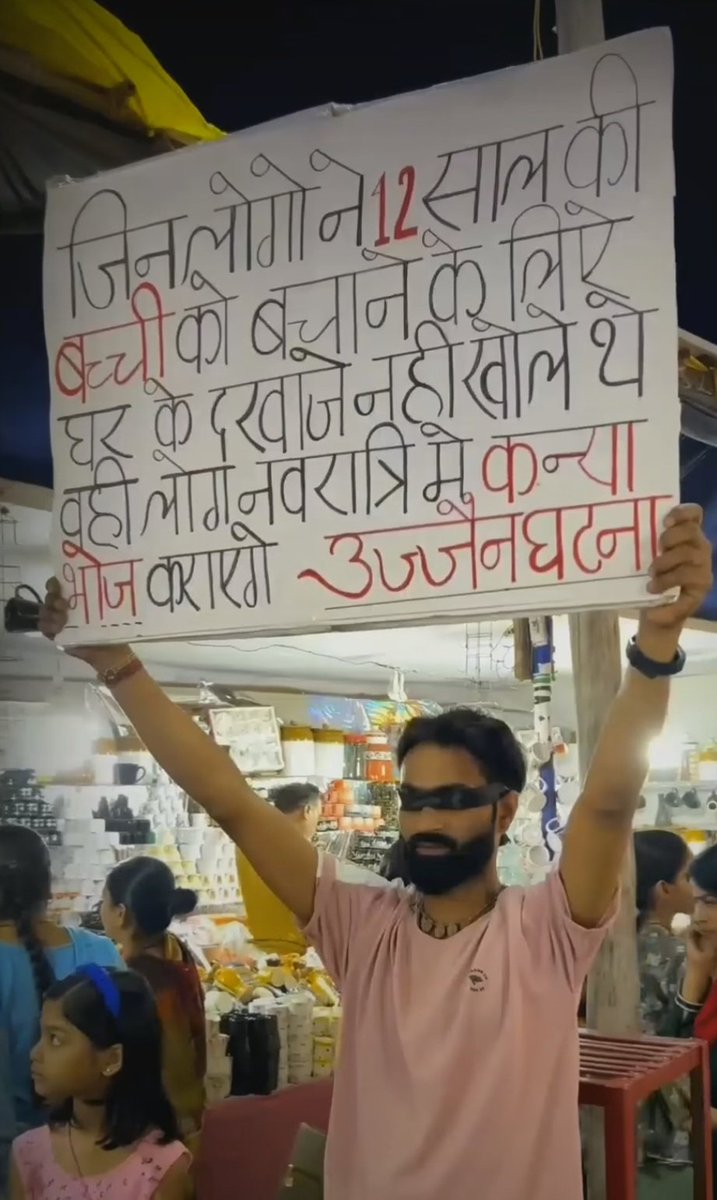 जिन लोगो ने 12 साल की
बच्ची को बचाने के लिए
घर के दरवाजे नही खोले थे
वही लोग नवरात्रि मे कन्या
भोज कराएगे उज्जैन घटना